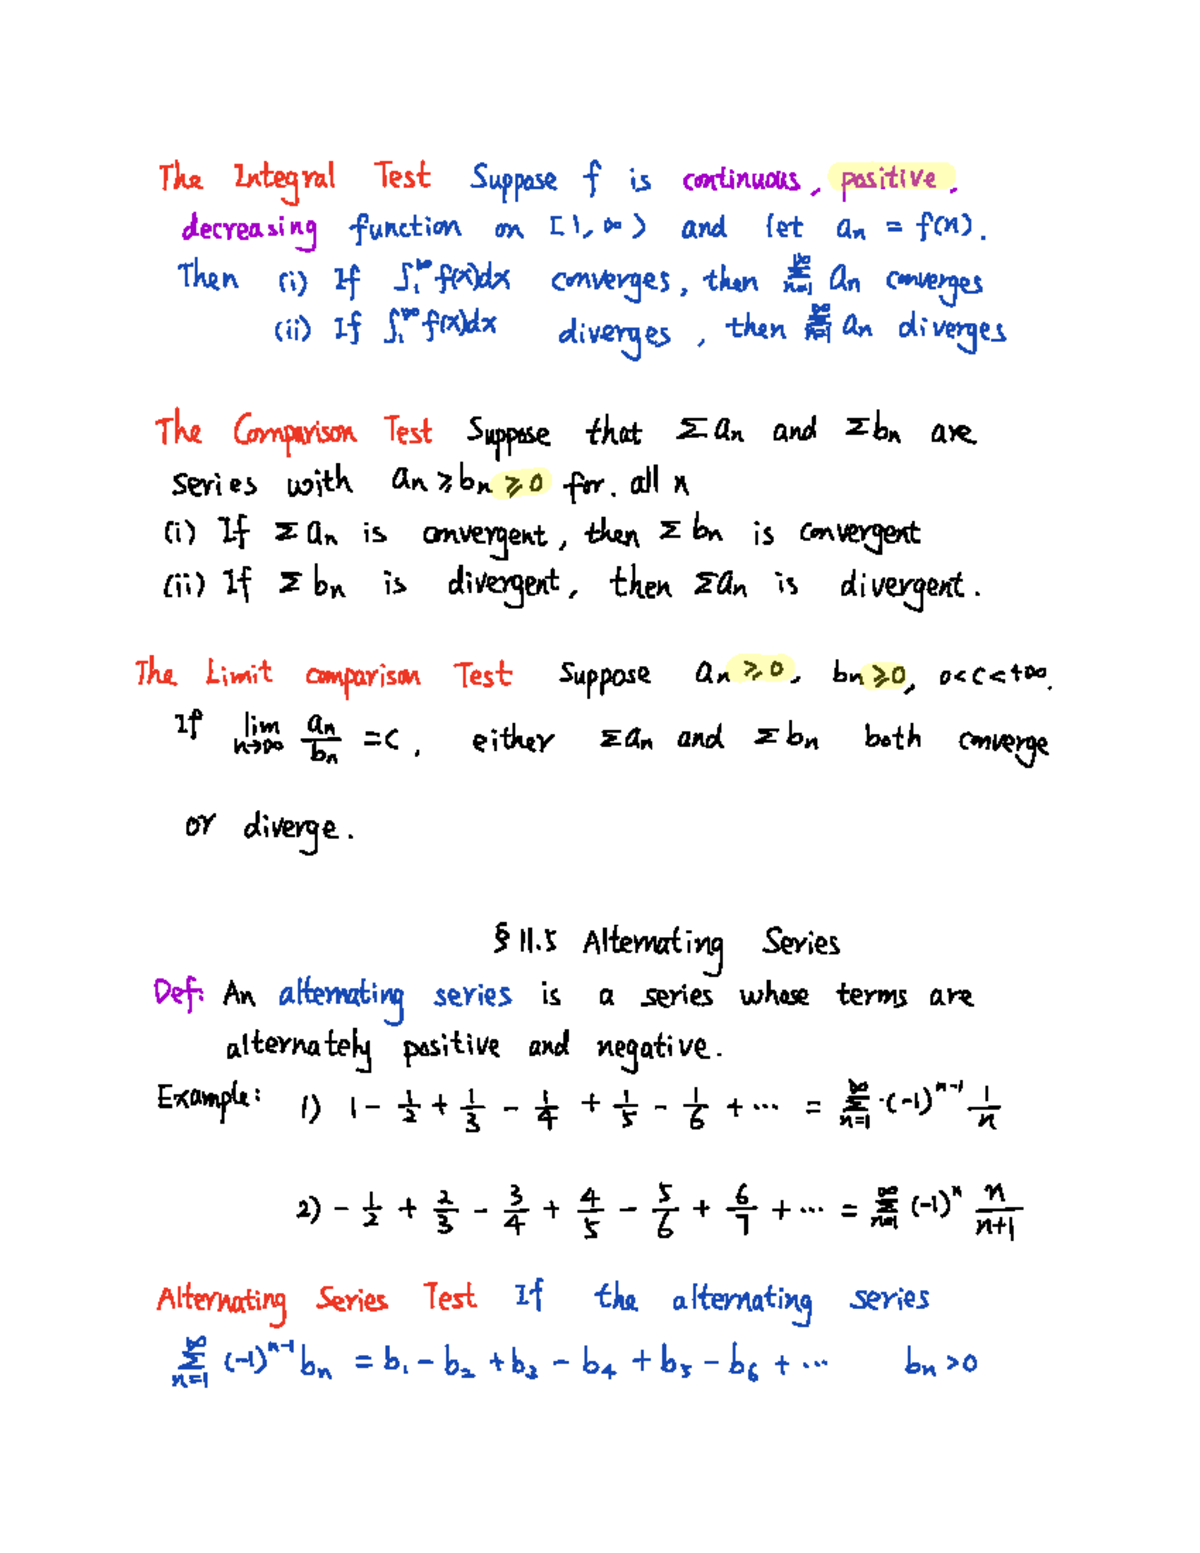 The Integral Test Suppose f is continuous, positive,
decreasing function on [1, ∞) and let aₙ = f(n).
Then (i) If ∫₁^∞ f(x)dx converges, then ∑_{n=1}^∞ aₙ converges
(ii) If ∫₁^∞ f(x)dx diverges, then ∑_{n=1}^∞ aₙ diverges
The Comparison Test Suppose that Σaₙ and Σbₙ are
series with aₙ ≥ bₙ ≥ 0 for. all n
(i) If Σaₙ is convergent, then Σbₙ is convergent
(ii) If Σbₙ is divergent, then Σaₙ is divergent.
The Limit comparison Test Suppose aₙ ≥ 0, bₙ ≥ 0, 0 < c < +∞.
If lim_{n→∞} aₙ/bₙ = c, either Σaₙ and Σbₙ both converge
or diverge.
§ 11.5 Alternating Series
Def: An alternating series is a series whose terms are
alternately positive and negative.
Example: 1) 1 - 1/2 + 1/3 - 1/4 + 1/5 - 1/6 + ⋯ = ∑_{n=1}^∞ ·(-1)^{n-1} 1/n
2) - 1/2 + 2/3 - 3/4 + 4/5 - 5/6 + 6/7 + ⋯ = ∑_{n=1}^∞ (-1)^n n/(n+1)
Alternating Series Test If the alternating series
∑_{n=1}^∞ (-1)^{n-1} bₙ = b₁ - b₂ + b₃ - b₄ + b₅ - b₆ + ⋯ bₙ > 0